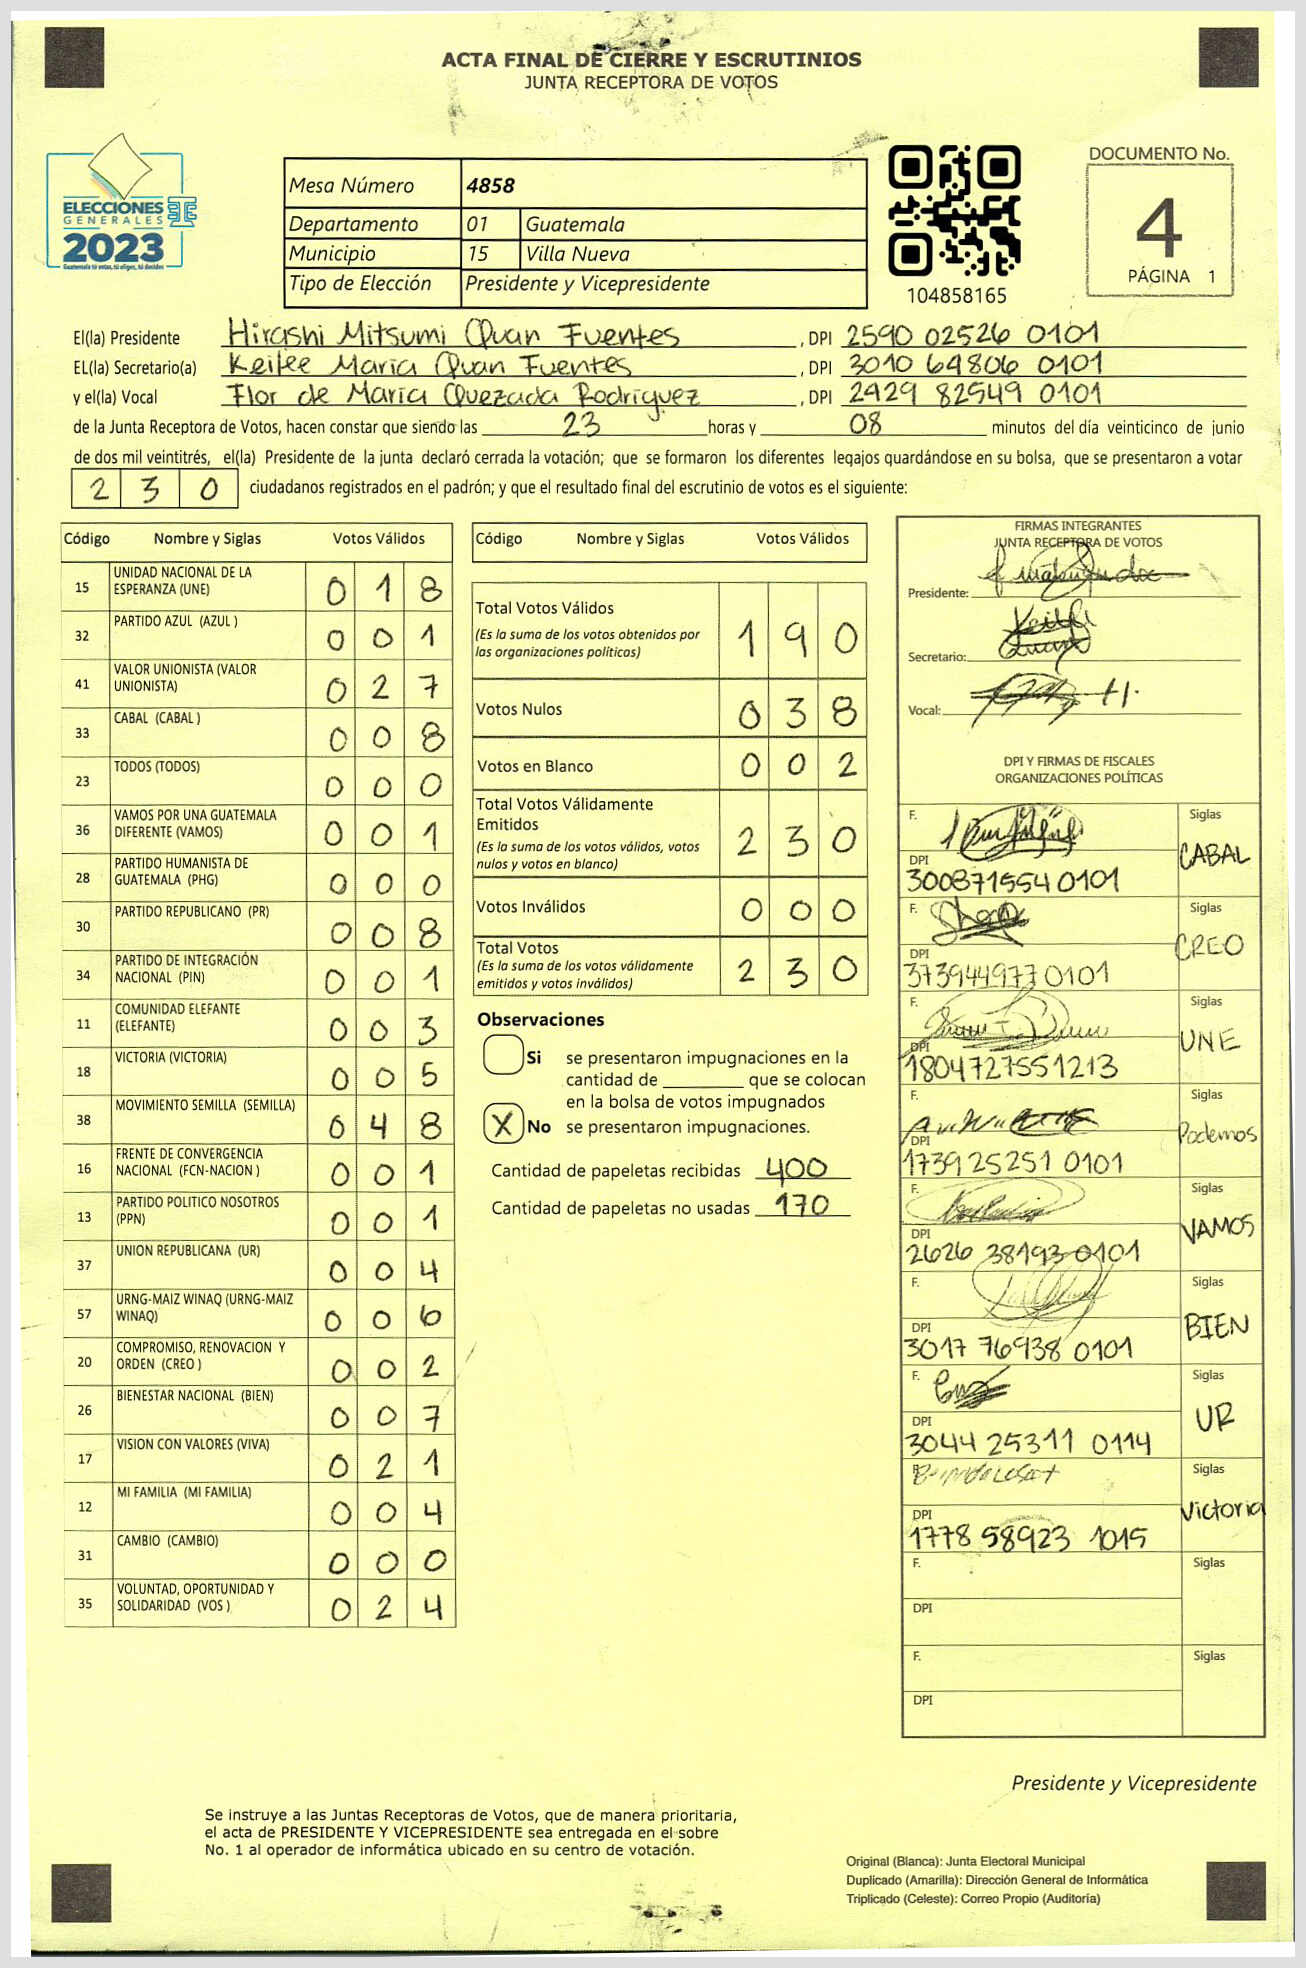 ACTA FINAL DE CIERRE Y ESCRUTINIOS
JUNTA RECEPTORA DE VOTOS
ELECCIONES
GENERALES
2023
Guatemala tú votas, tú eliges, tú decides
Mesa Número 4858
Departamento 01 Guatemala
Municipio 15 Villa Nueva
Tipo de Elección Presidente y Vicepresidente
104858165
DOCUMENTO No.
4
PÁGINA 1
El(la) Presidente Hirashi Mitsumi Quan Fuentes , DPI 2590 02526 0101
EL(la) Secretario(a) Keilee María Quan Fuentes , DPI 3010 64806 0101
y el(la) Vocal Flor de María Quezada Rodríguez , DPI 2429 82549 0101
de la Junta Receptora de Votos, hacen constar que siendo las 23 horas y 08 minutos del día veinticinco de junio
de dos mil veintitrés, el(la) Presidente de la junta declaró cerrada la votación; que se formaron los diferentes legajos guardándose en su bolsa, que se presentaron a votar
230 ciudadanos registrados en el padrón; y que el resultado final del escrutinio de votos es el siguiente:
Código Nombre y Siglas Votos Válidos
15 UNIDAD NACIONAL DE LA ESPERANZA (UNE) 018
32 PARTIDO AZUL (AZUL ) 001
41 VALOR UNIONISTA (VALOR UNIONISTA) 027
33 CABAL (CABAL ) 008
23 TODOS (TODOS) 000
36 VAMOS POR UNA GUATEMALA DIFERENTE (VAMOS) 001
28 PARTIDO HUMANISTA DE GUATEMALA (PHG) 000
30 PARTIDO REPUBLICANO (PR) 008
34 PARTIDO DE INTEGRACIÓN NACIONAL (PIN) 001
11 COMUNIDAD ELEFANTE (ELEFANTE) 003
18 VICTORIA (VICTORIA) 005
38 MOVIMIENTO SEMILLA (SEMILLA) 048
16 FRENTE DE CONVERGENCIA NACIONAL (FCN-NACION ) 001
13 PARTIDO POLITICO NOSOTROS (PPN) 001
37 UNION REPUBLICANA (UR) 004
57 URNG-MAIZ WINAQ (URNG-MAIZ WINAQ) 006
20 COMPROMISO, RENOVACION Y ORDEN (CREO ) 002
26 BIENESTAR NACIONAL (BIEN) 007
17 VISION CON VALORES (VIVA) 021
12 MI FAMILIA (MI FAMILIA) 004
31 CAMBIO (CAMBIO) 000
35 VOLUNTAD, OPORTUNIDAD Y SOLIDARIDAD (VOS ) 024
Código Nombre y Siglas Votos Válidos
Total Votos Válidos 190
(Es la suma de los votos obtenidos por
las organizaciones políticas)
Votos Nulos 038
Votos en Blanco 002
Total Votos Válidamente
Emitidos 230
(Es la suma de los votos válidos, votos
nulos y votos en blanco)
Votos Inválidos 000
Total Votos 230
(Es la suma de los votos válidamente
emitidos y votos inválidos)
Observaciones
Si se presentaron impugnaciones en la
cantidad de ________ que se colocan
en la bolsa de votos impugnados
X No se presentaron impugnaciones.
Cantidad de papeletas recibidas 400
Cantidad de papeletas no usadas 170
FIRMAS INTEGRANTES
JUNTA RECEPTORA DE VOTOS
Presidente:
Secretario:
Vocal:
DPI Y FIRMAS DE FISCALES
ORGANIZACIONES POLÍTICAS
F. Siglas
CABAL
DPI
300871554 0101
F. Siglas
CREO
DPI
373944977 0101
F. Siglas
UNE
DPI
1804727551213
F. Siglas
Podemos
DPI
1739 25251 0101
F. Siglas
VAMOS
DPI
2626 38193 0101
F. Siglas
BIEN
DPI
3017 76938 0101
F. Siglas
UR
DPI
3044 25311 0114
F. Siglas
Victoria
DPI
1778 58923 1015
F. Siglas
DPI
F. Siglas
DPI
Presidente y Vicepresidente
Se instruye a las Juntas Receptoras de Votos, que de manera prioritaria,
el acta de PRESIDENTE Y VICEPRESIDENTE sea entregada en el sobre
No. 1 al operador de informática ubicado en su centro de votación.
Original (Blanca): Junta Electoral Municipal
Duplicado (Amarilla): Dirección General de Informática
Triplicado (Celeste): Correo Propio (Auditoría)